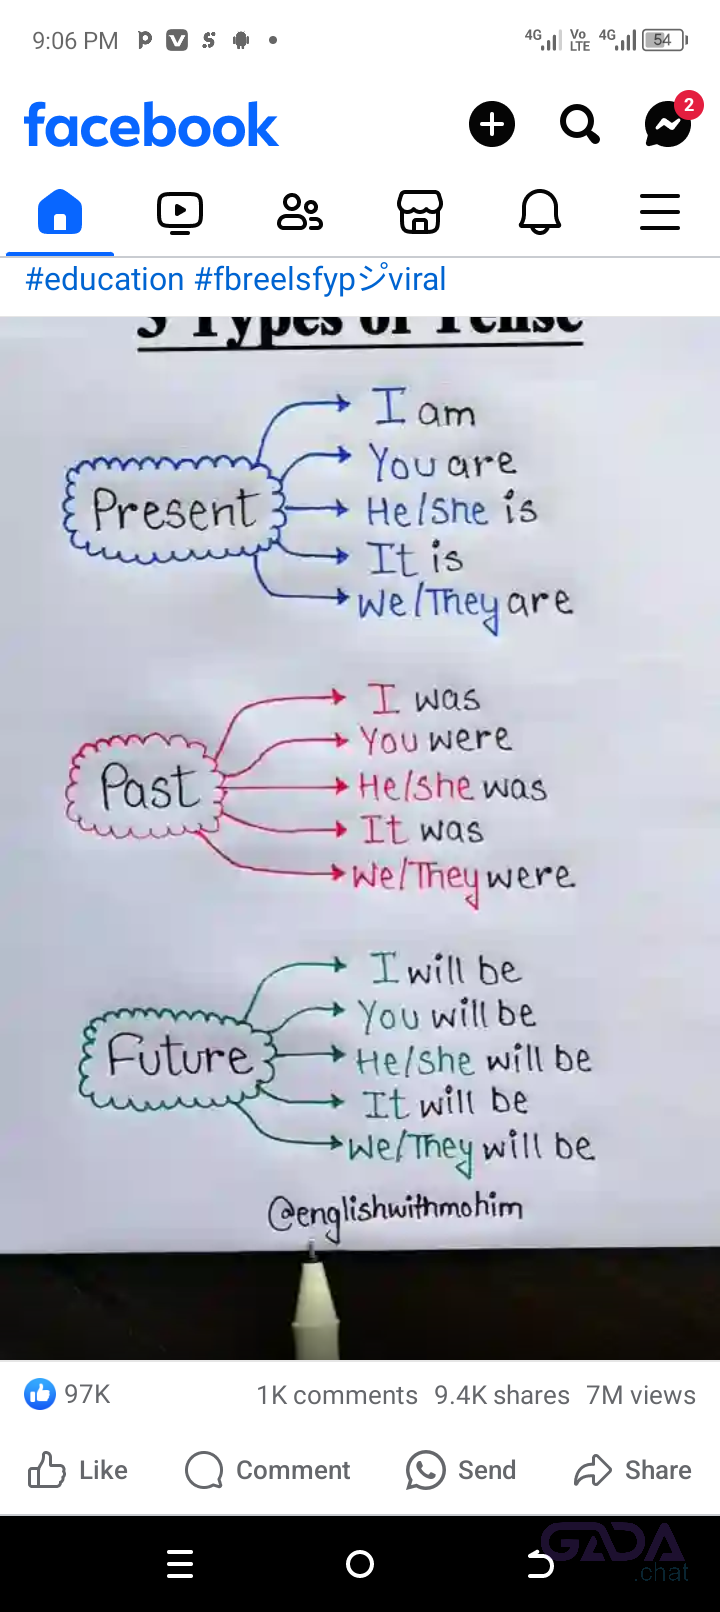 9:06 PM
4G Vo LTE 4G 54
facebook
2
#education #fbreelsfypシviral
3 Types of Tense
I am
You are
Present
He/she is
It is
We/They are
I was
You were
Past
He/she was
It was
We/They were
I will be
You will be
Future
He/she will be
It will be
We/They will be
@englishwithmohim
97K 1K comments 9.4K shares 7M views
Like Comment Send Share
GADA
.chat